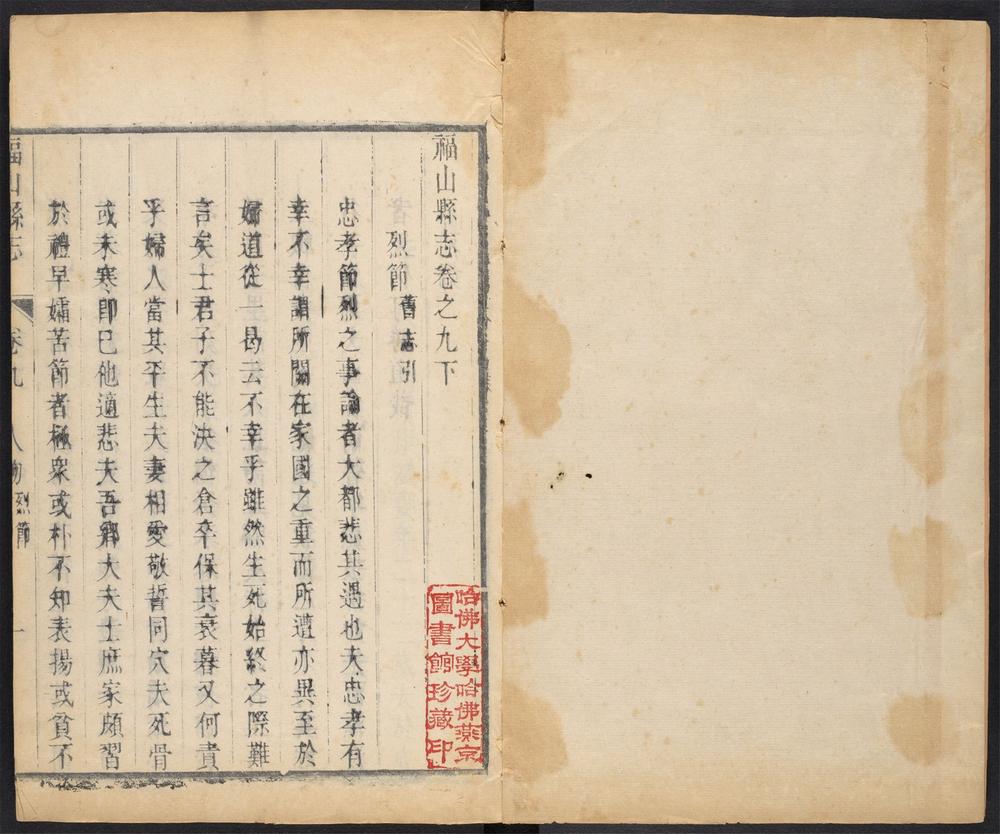 福山縣志卷之九下
烈節舊志引
忠孝節烈之事論者大都悲其遇也夫忠孝有
幸不幸謂所關在家國之重而所遭亦異至於
婦道從一曷云不幸乎雖然生死始終之際難
言矣士君子不能決之倉卒保其衰暮又何責
乎婦人當其平生夫妻相愛敬誓同穴夫死骨
或未寒卽已他適悲夫吾鄉大夫士庶家頗習
於禮早孀苦節者極衆或朴不知表揚或貧不
福山縣志
卷九
人物烈節
一
哈佛大學哈佛燕京
圖書館珍藏印